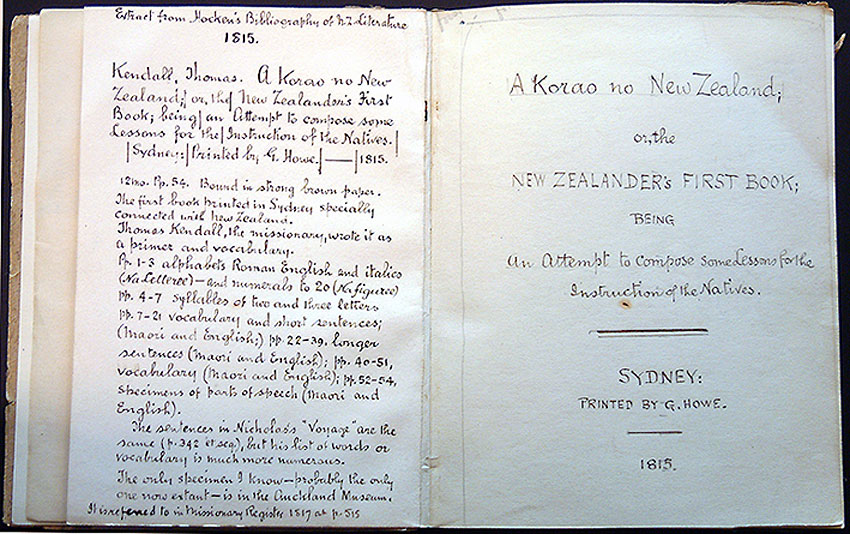 Extract from Hocken's Bibliography of N.Z. Literature
1815.
Kendall, Thomas. A Korao no New
Zealand; | or, the | New Zealander's First
Book; being | an Attempt to compose some
Lessons for the | Instruction of the Natives. |
| Sydney: | Printed by G. Howe. | — | 1815.
12mo. Pp. 54. Bound in strong brown paper.
The first book printed in Sydney specially
connected with New Zealand.
Thomas Kendall, the missionary, wrote it as
a primer and vocabulary.
Pp. 1-3 alphabets Roman English and italics
(Na Letteree) — and numerals to 20 (Na figuree)
pp. 4-7 syllables of two and three letters
pp. 7-21 vocabulary and short sentences;
(Maori and English;) pp. 22-39, longer
sentences (Maori and English); pp. 40-51,
vocabulary (Maori and English); pp. 52-54,
specimens of parts of speech (Maori and
English).
The sentences in Nicholas's "Voyage" are the
same (p. 342 et seq), but his list of words or
vocabulary is much more numerous.
The only specimen I know — probably the only
one now extant — is in the Auckland Museum.
It is referred to in Missionary Register 1817 at p. 515
A Korao no New Zealand;
or, the
NEW ZEALANDER's FIRST BOOK;
BEING
An Attempt to compose Some Lessons for the
Instruction of the Natives.
SYDNEY:
PRINTED BY G. HOWE.
1815.